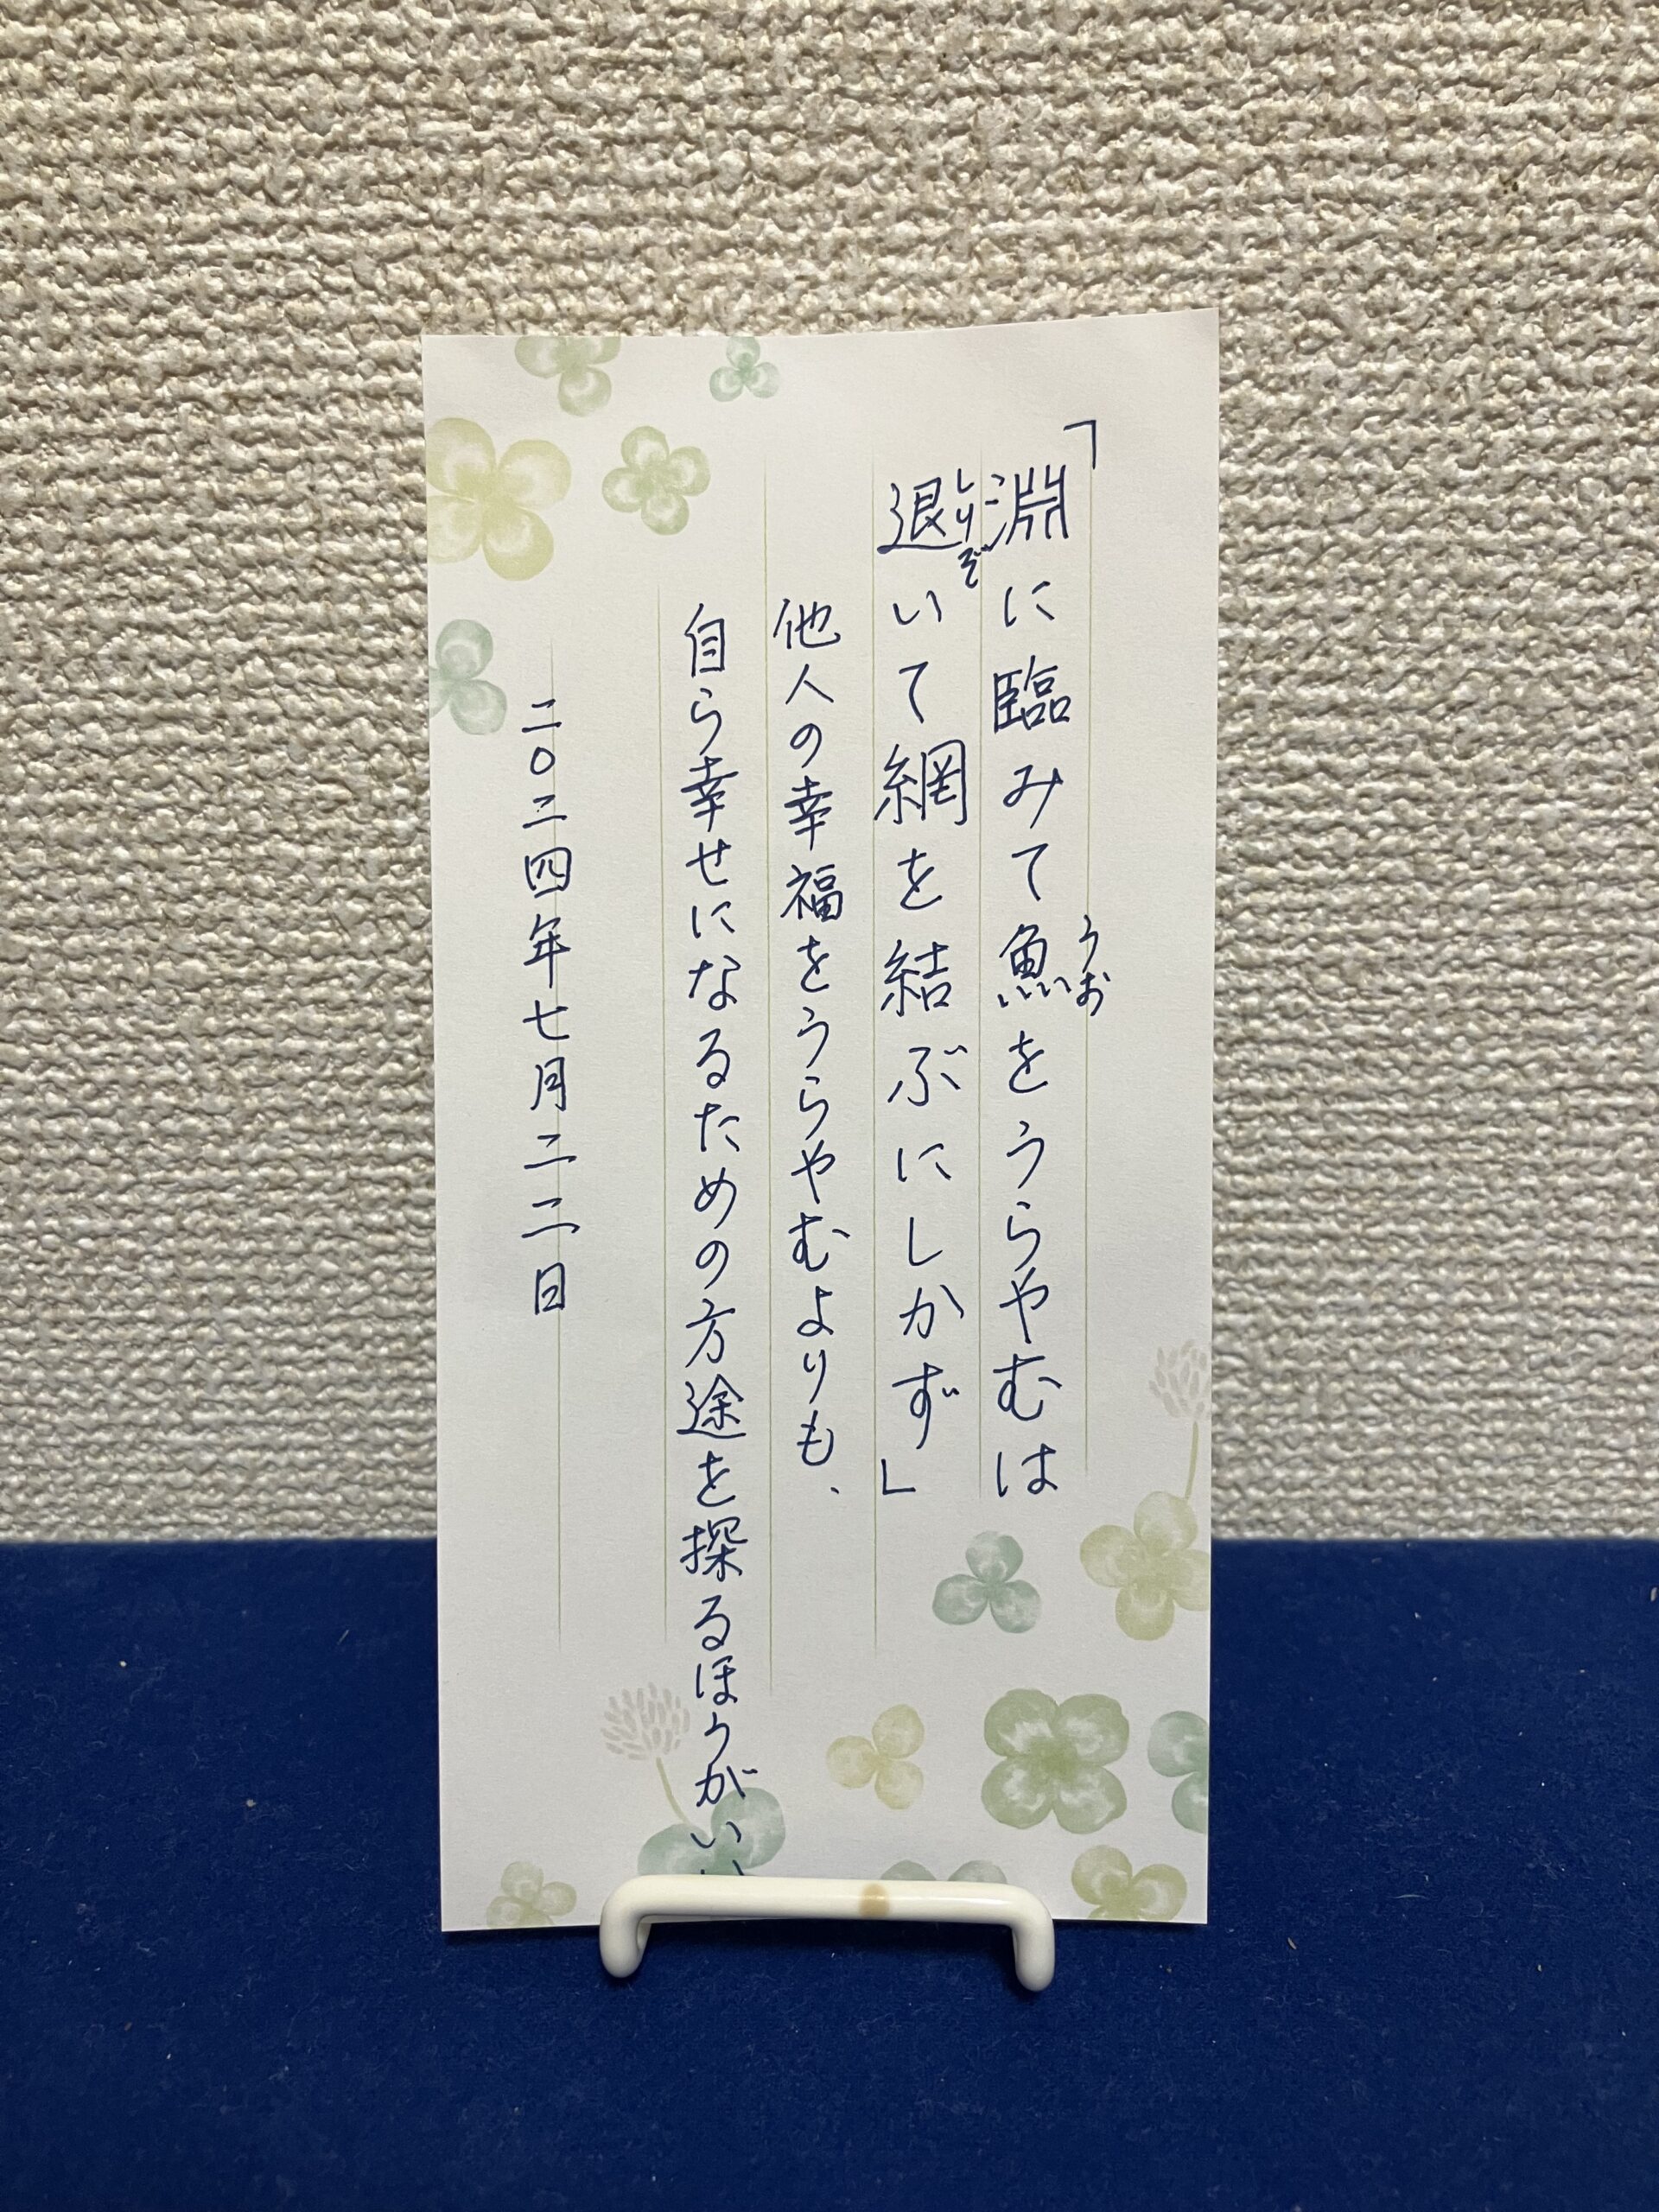 「淵に臨みて魚をうらやむは
うお
退いて網を結ぶにしかず」
しりぞ
他人の幸福をうらやむよりも、
自ら幸せになるための方途を探るほうがいい
二〇二四年七月二二日